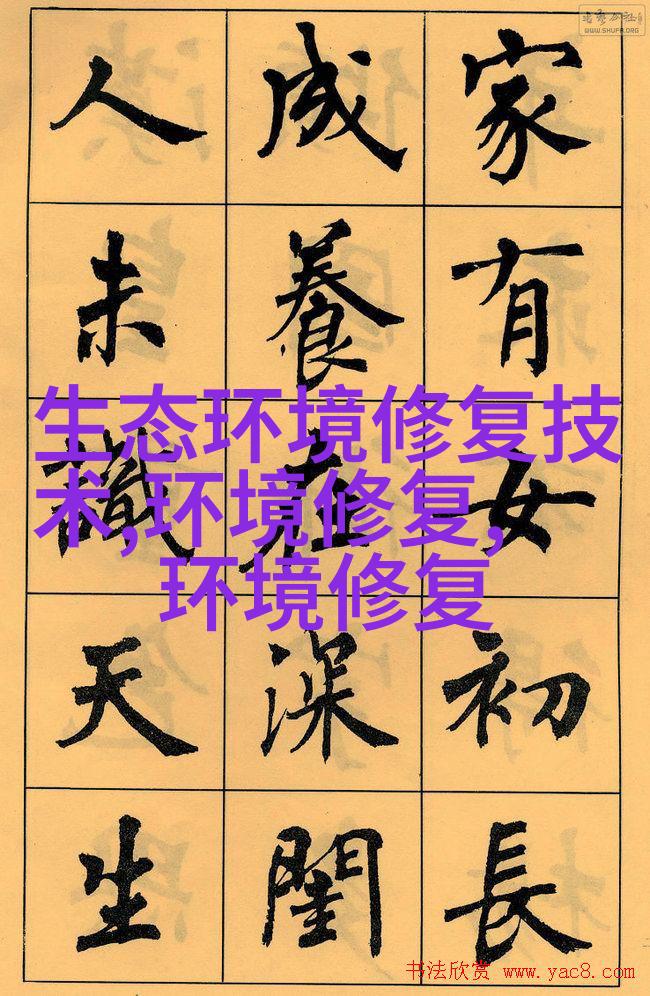 WWW.SHUFA.ORG
家有女初長
成養在深閨
人未識天生
生态环境修复技
术,环境修复,
环境修复
书法欣赏 www.yac8.com